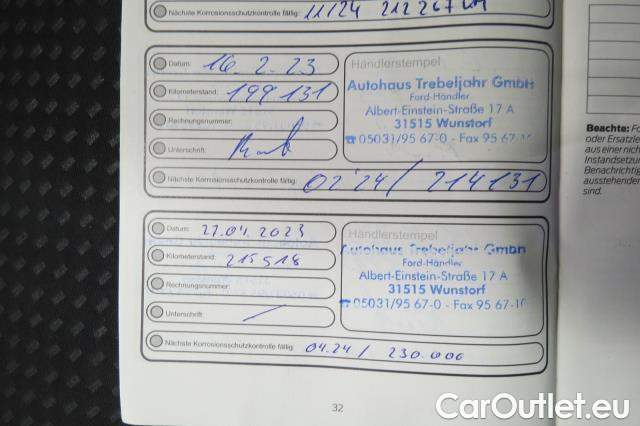 Nächste Korrosionsschutzkontrolle fällig: 11/24 212 267 KM
Datum: 16.2.23
Händlerstempel
Kilometerstand: 199 131
Autohaus Trebeljahr GmbH
Ford-Händler
Rechnungsnummer:
Albert-Einstein-Straße 17 A
31515 Wunstorf
Unterschrift:
☎ 05031/95 67-0 - Fax 95 67-10
Nächste Korrosionsschutzkontrolle fällig: 02'24 / 214131
Datum: 27.04.2023
Händlerstempel
Autohaus Trebeljahr GmbH
Kilometerstand: 215918
Ford-Händler
Albert-Einstein-Straße 17 A
Rechnungsnummer:
31515 Wunstorf
☎ 05031/95 67-0 - Fax 95 67-10
Unterschrift:
Nächste Korrosionsschutzkontrolle fällig: 04.24 / 230.000
32
Beachte:
oder Ersatzle
aus einer nich
Instandsetzu
Benachrichtig
ausstehender
sind.
CarOutlet.eu